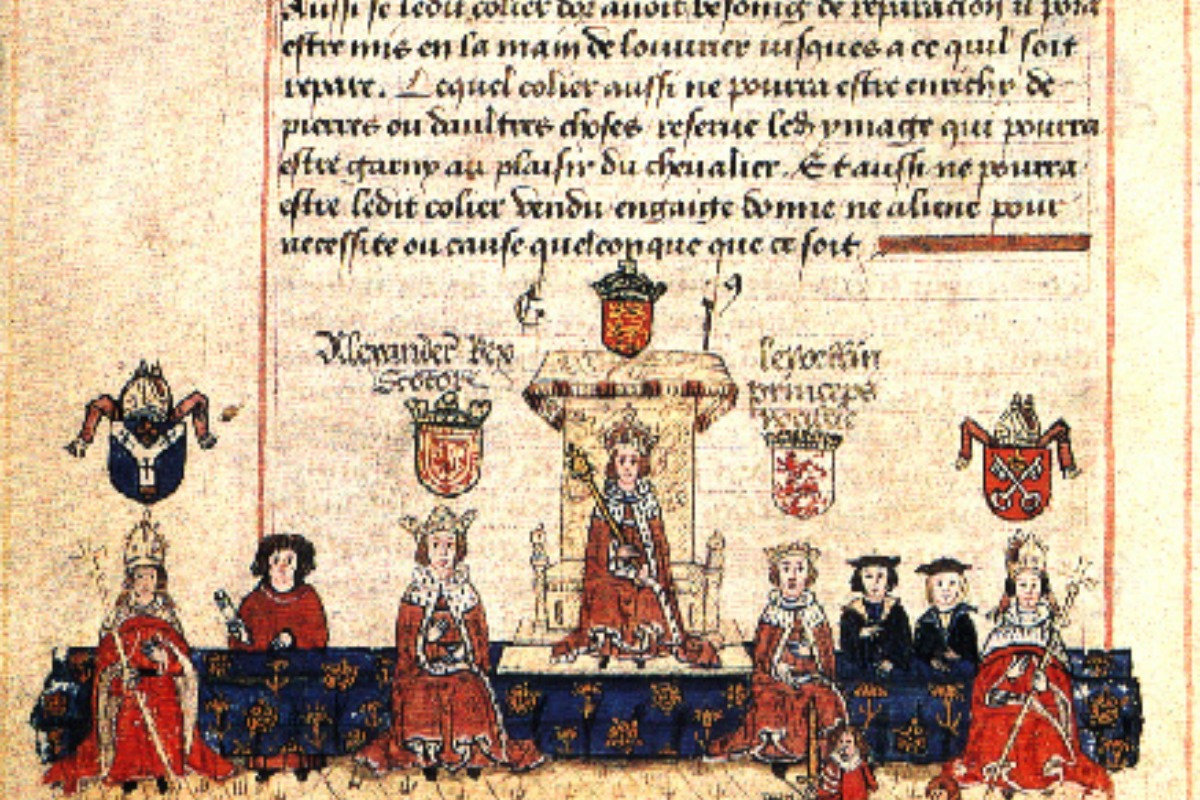 Aussi se ledit colier dor auoit besoing de reparacion il pora
estre mis en la main de louurier iusques a ce quil soit
repare. Lequel colier aussi ne pourra estre enrichy de
pierres ou daultres choses reserue led ymage qui pourra
estre garny au plaisir du cheualier. Et aussi ne pourra
estre ledit colier vendu engaige donne ne aliene pour
necessite ou cause quelconque que ce soit
Alexander Rex
Scotor
princeps